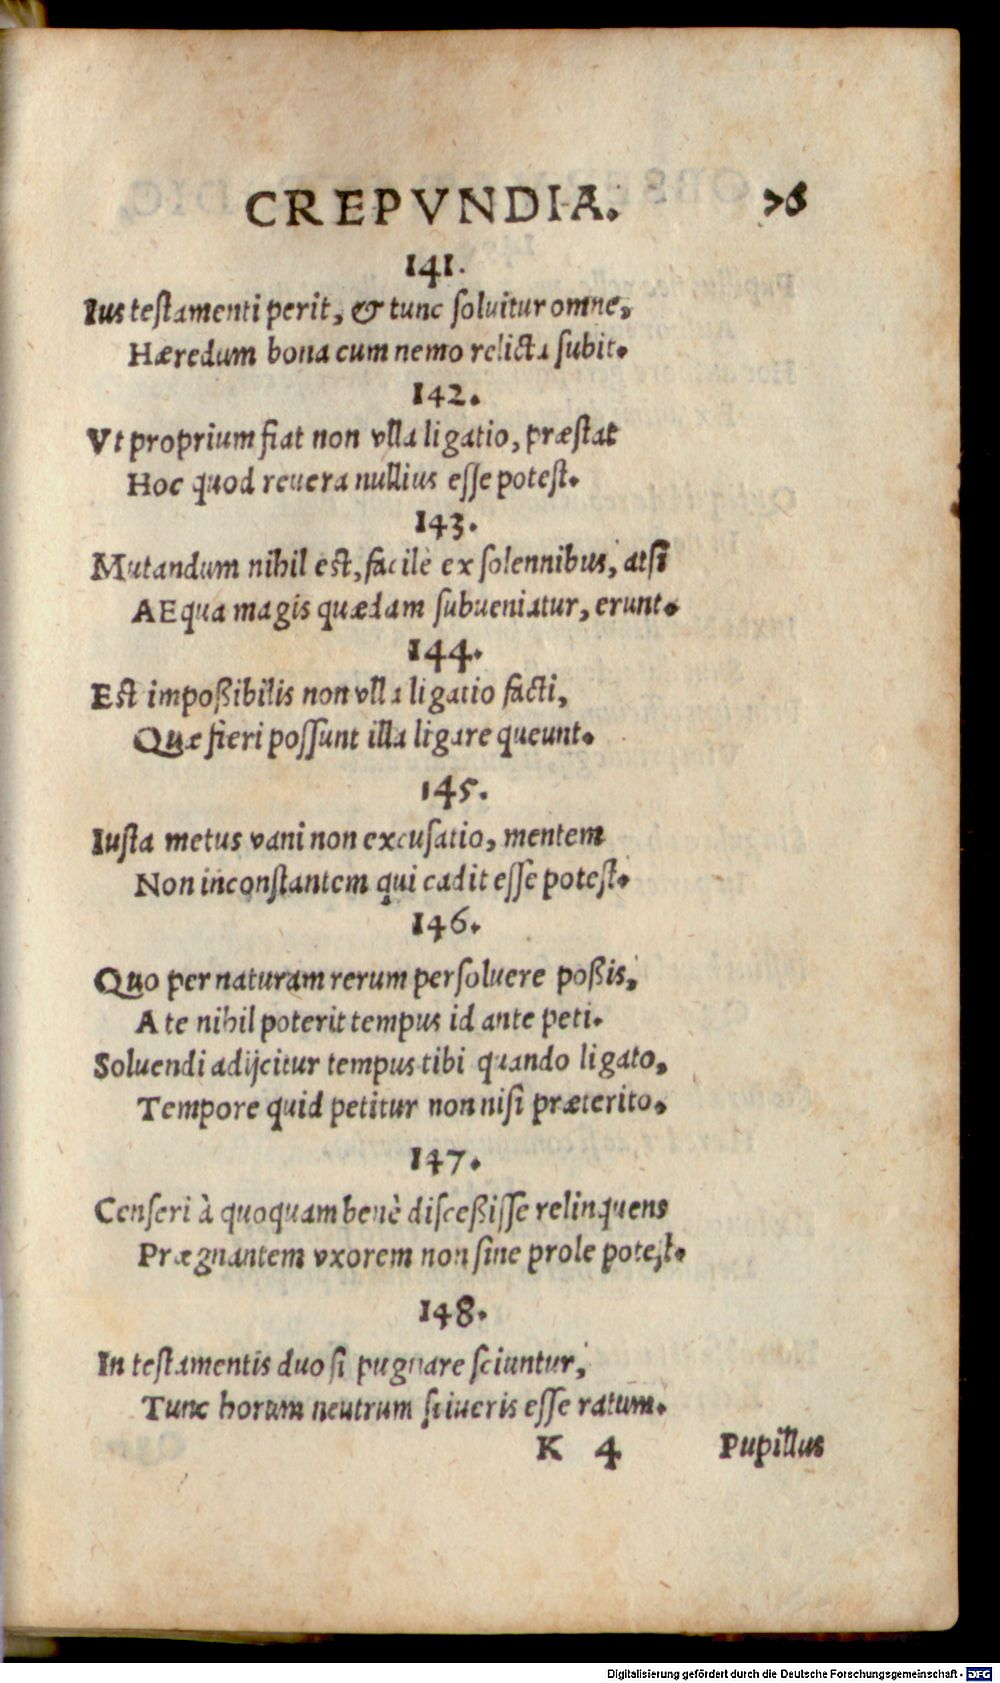 CREPVNDIA. 76
141.
Ius testamenti perit, & tunc soluitur omne,
Hæredum bona cum nemo relicta subit.
142.
Vt proprium fiat non vlla ligatio, præstat
Hoc quod reuera nullius esse potest.
143.
Mutandum nihil est, facile ex solennibus, at si
AEqua magis quædam subueniatur, erunt.
144.
Est impoßibilis non vlla ligatio facti,
Quæ fieri possunt illa ligare queunt.
145.
Iusta metus vani non excusatio, mentem
Non inconstantem qui cadit esse potest.
146.
Quo per naturam rerum persoluere poßis,
A te nihil poterit tempus id ante peti.
Soluendi adijcitur tempus tibi quando ligato,
Tempore quid petitur non nisi præterito.
147.
Censeri à quoquam benè disceßisse relinquens
Prægnantem vxorem non sine prole potest.
148.
In testamentis duo si pugnare sciuntur,
Tunc horum neutrum sciueris esse ratum.
K 4 Pupillus
Digitalisierung gefördert durch die Deutsche Forschungsgemeinschaft - DFG